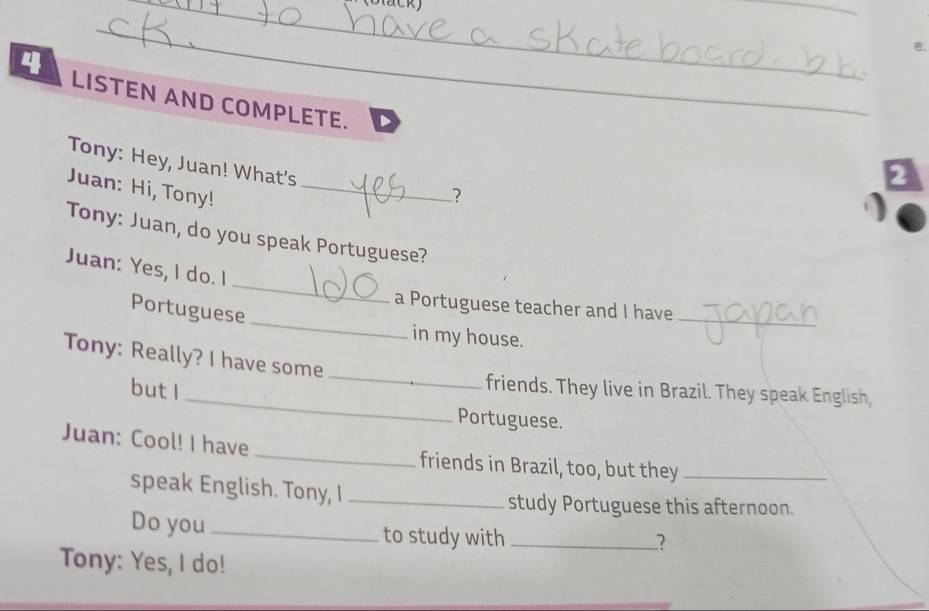 to have a skateboard. bb.
ck.
e.
4 LISTEN AND COMPLETE.
2
Tony: Hey, Juan! What's yes ?
Juan: Hi, Tony!
Tony: Juan, do you speak Portuguese?
Juan: Yes, I do. I Ido a Portuguese teacher and I have Japan
Portuguese ____ in my house.
Tony: Really? I have some ____ friends. They live in Brazil. They speak English,
but I ____ Portuguese.
Juan: Cool! I have ____ friends in Brazil, too, but they ____
speak English. Tony, I ____ study Portuguese this afternoon.
Do you ____ to study with ____?
Tony: Yes, I do!